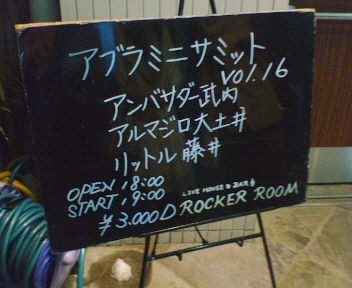 アブラミニサミット
VOl.16
アンバサダー武内
アルマジロ大土井
リットル 藤井
OPEN 18:00
START 19:00
¥3.000D
LIVE HOUSE & BAR
ROCKER ROOM